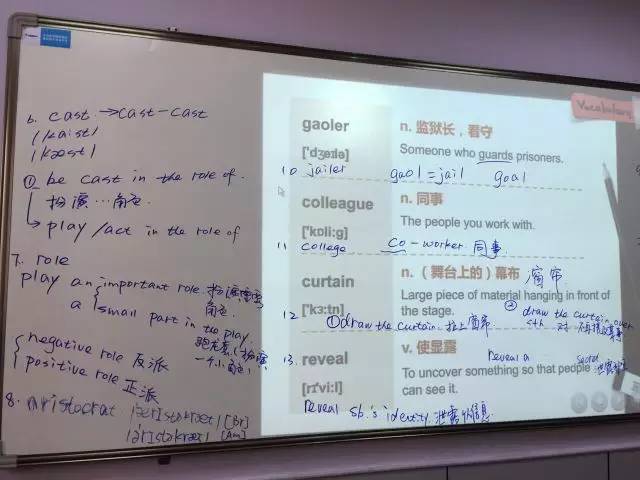 6. cast → cast - cast
/kɑːst/
/kæst/
① be cast in the role of.
扮演…角色.
→ play /act in the role of
7. role
play an important role 扮演重要角色.
a small part in the play.
跑龙套 (扮演一个小角色)
negative role 反派
positive role 正派
8. aristocrat /ˈærɪstəkræt/ [Br]
/əˈrɪstəkræt/ [Am]
Vocabulary
gaoler
n. 监狱长，看守
['dʒeɪlə]
Someone who guards prisoners.
10 jailer gaol = jail goal
colleague
n. 同事
['kɒli:g]
The people you work with.
11 college co-worker 同事
curtain
n.（舞台上的）幕布 窗帘
['kɜ:tn]
Large piece of material hanging in front of the stage.
12 ① draw the curtain. 拉上窗帘
② draw the curtain over sth 对
13. reveal
v. 使显露
reveal a secret
[rɪ'vi:l]
To uncover something so that people can see it.
reveal sb.'s identity 泄露